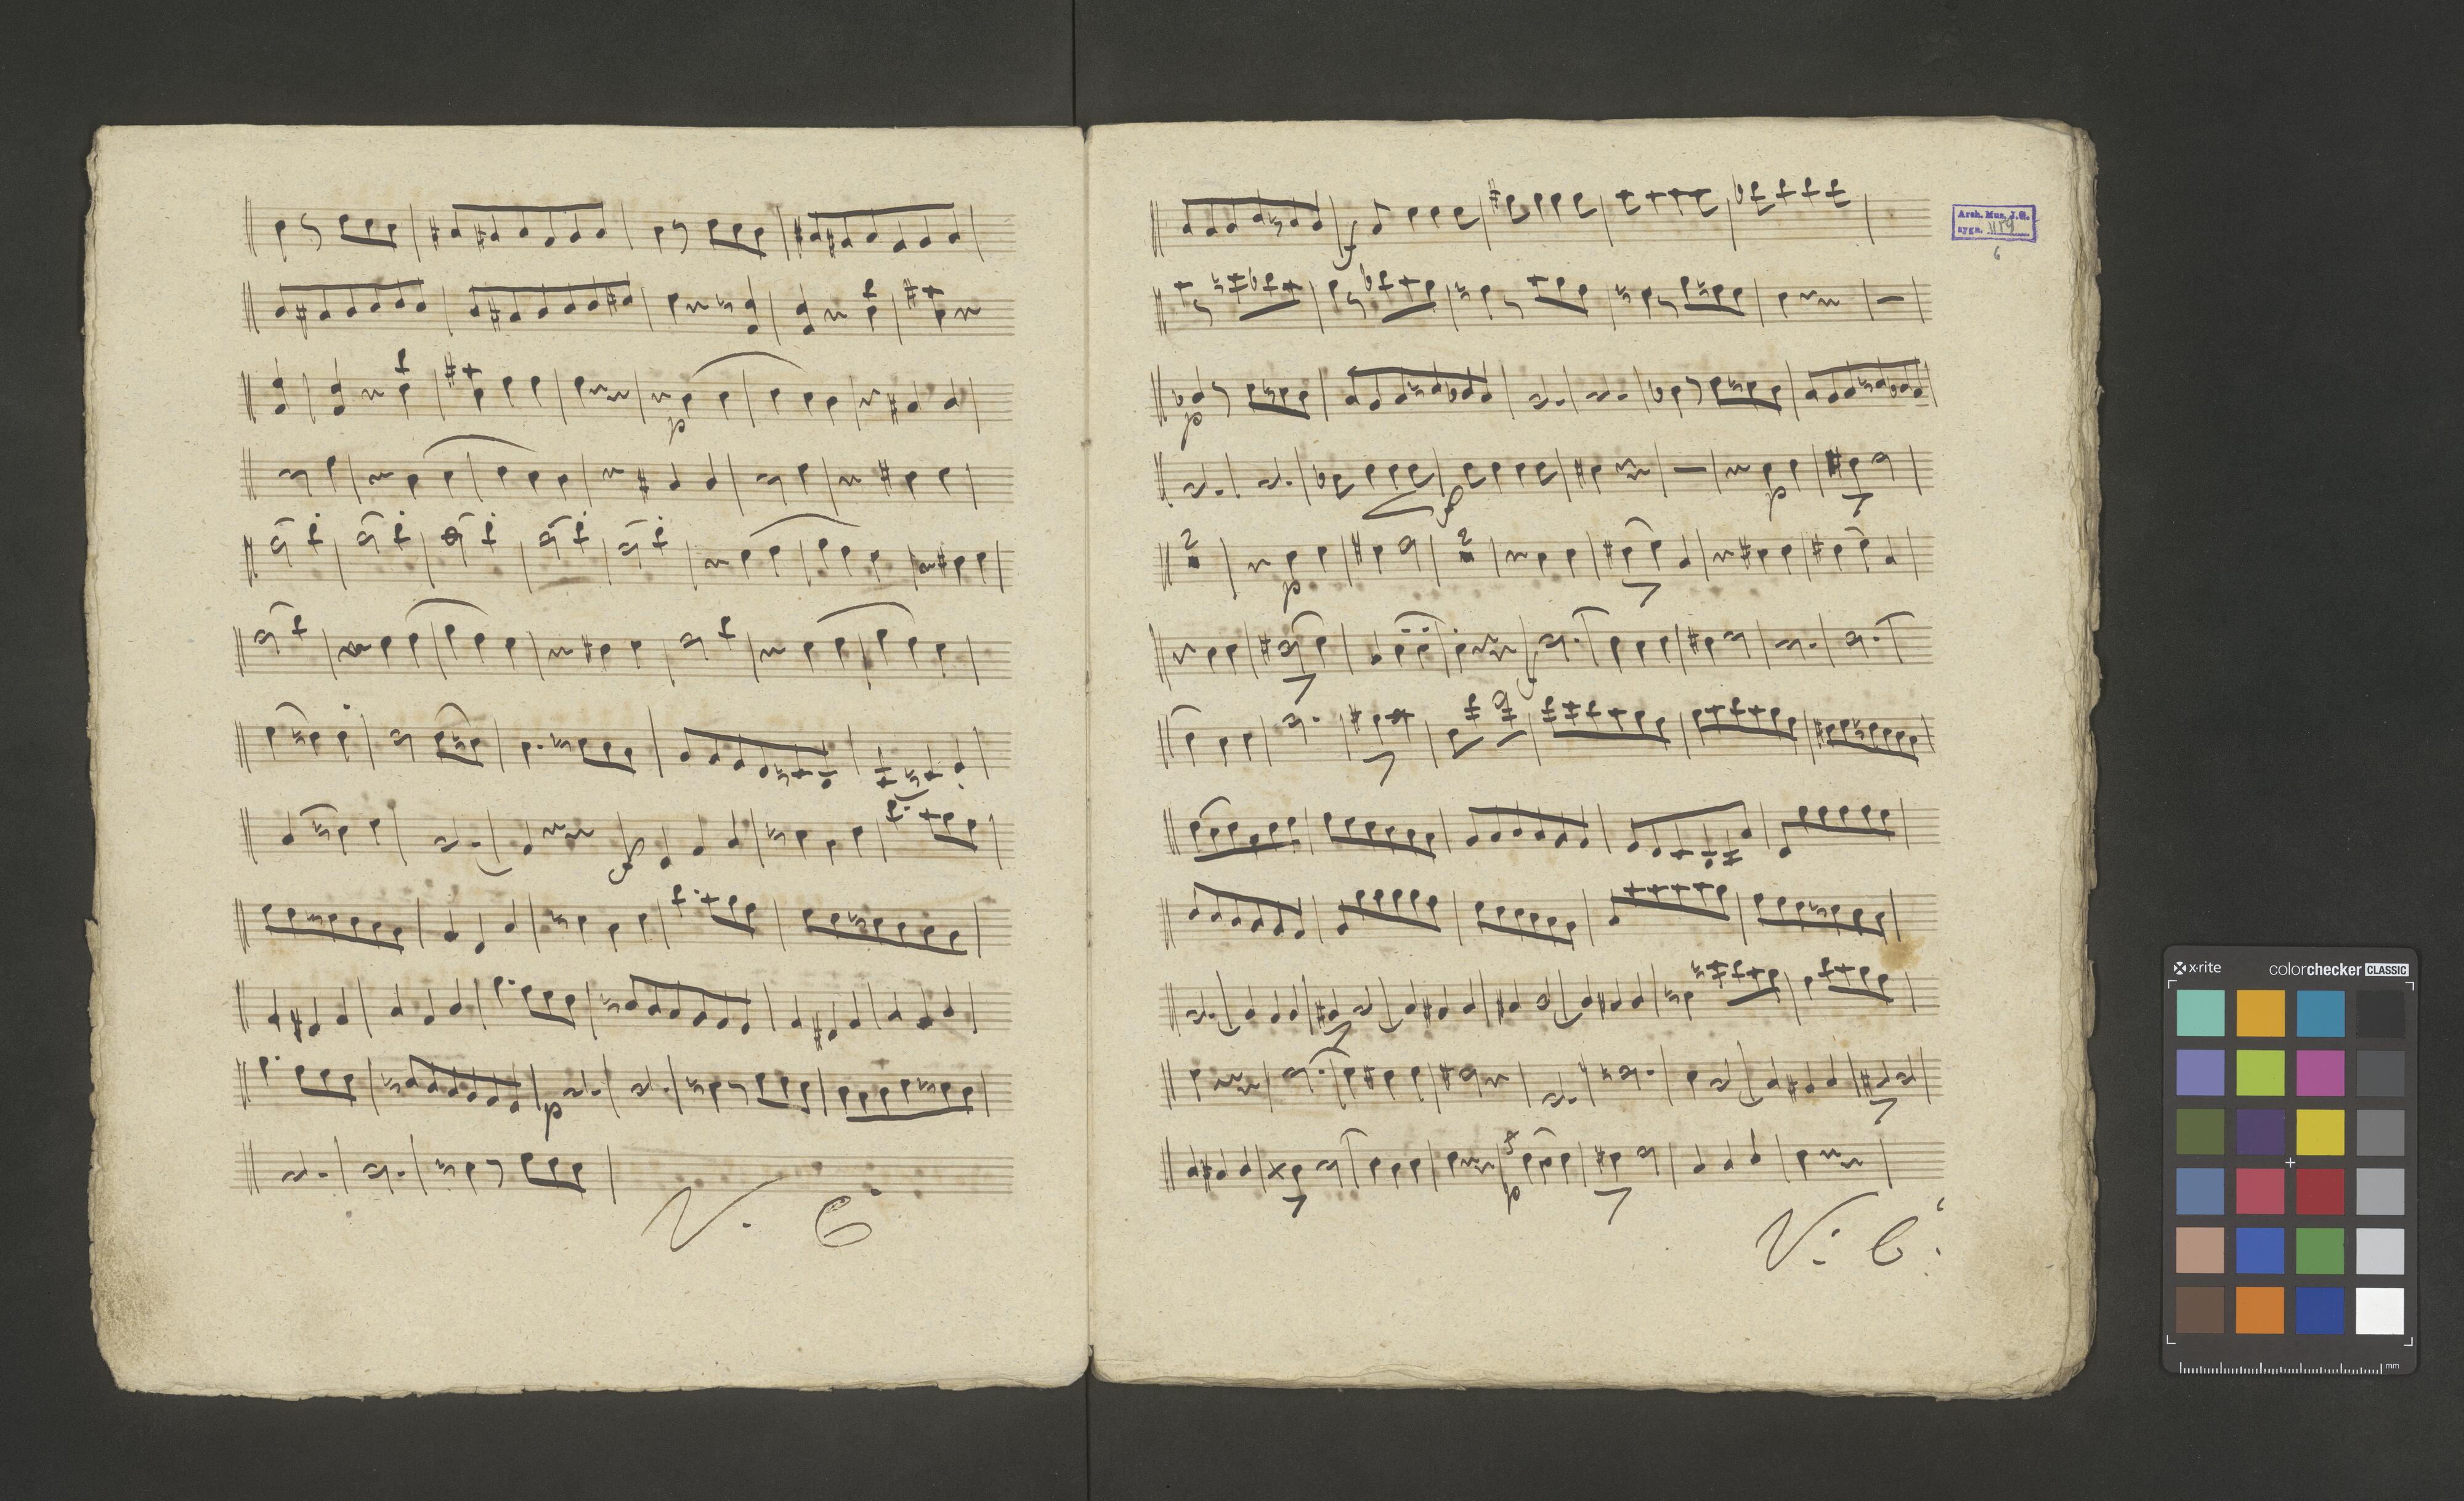 p
f
p
V. 6
f
p
f
p
p
f
f
p
V: 6:
2
2
Arch. Mus. J.G.
sygn.
6
x·rite
colorchecker CLASSIC
mm